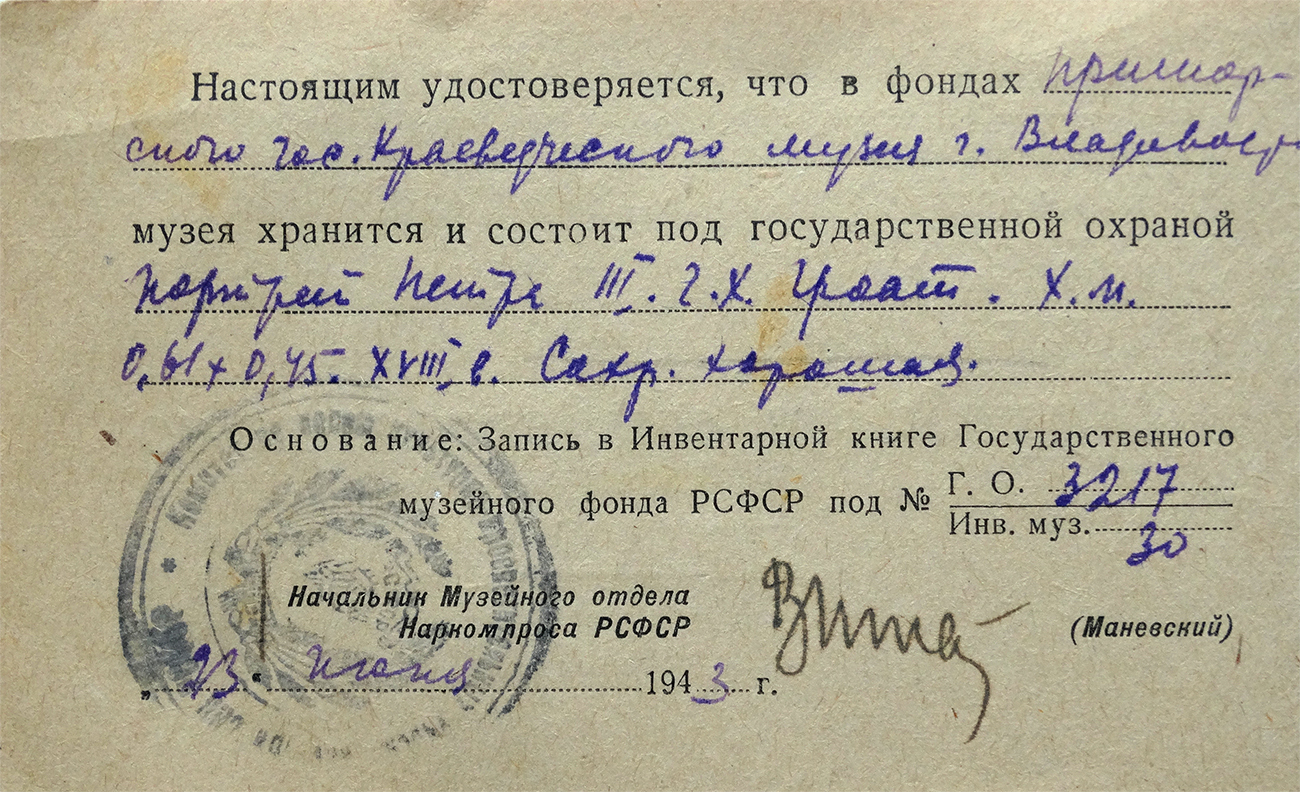 Настоящим удостоверяется, что в фондах Примор-
ского гос. Краеведческого музея г. Владивосто
музея хранится и состоит под государственной охраной
Портрет Петра III. Г.Х. Гроот. Х.м.
0,61 х 0,45. XVIII в. Сохр. хорошая.
Основание: Запись в Инвентарной книге Государственного
музейного фонда РСФСР под № Г. О. 3217
Инв. муз. 30
Начальник Музейного отдела
Наркомпроса РСФСР (Маневский)
„23“ июня 1943 г.